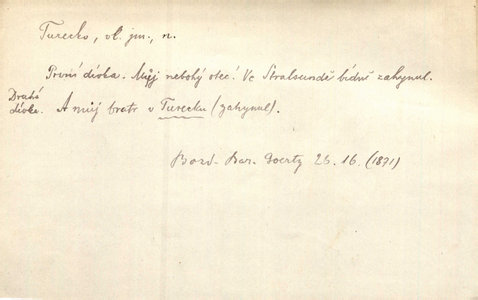 Turecko, vl. jm., n.
První dívka. Můj nebohý otec! Ve Stralsundě bídně zahynul.
Druhá dívka. A můj bratr v Turecku (zahynul).
Bozd. Bar. Goertz 26.16. (1871)